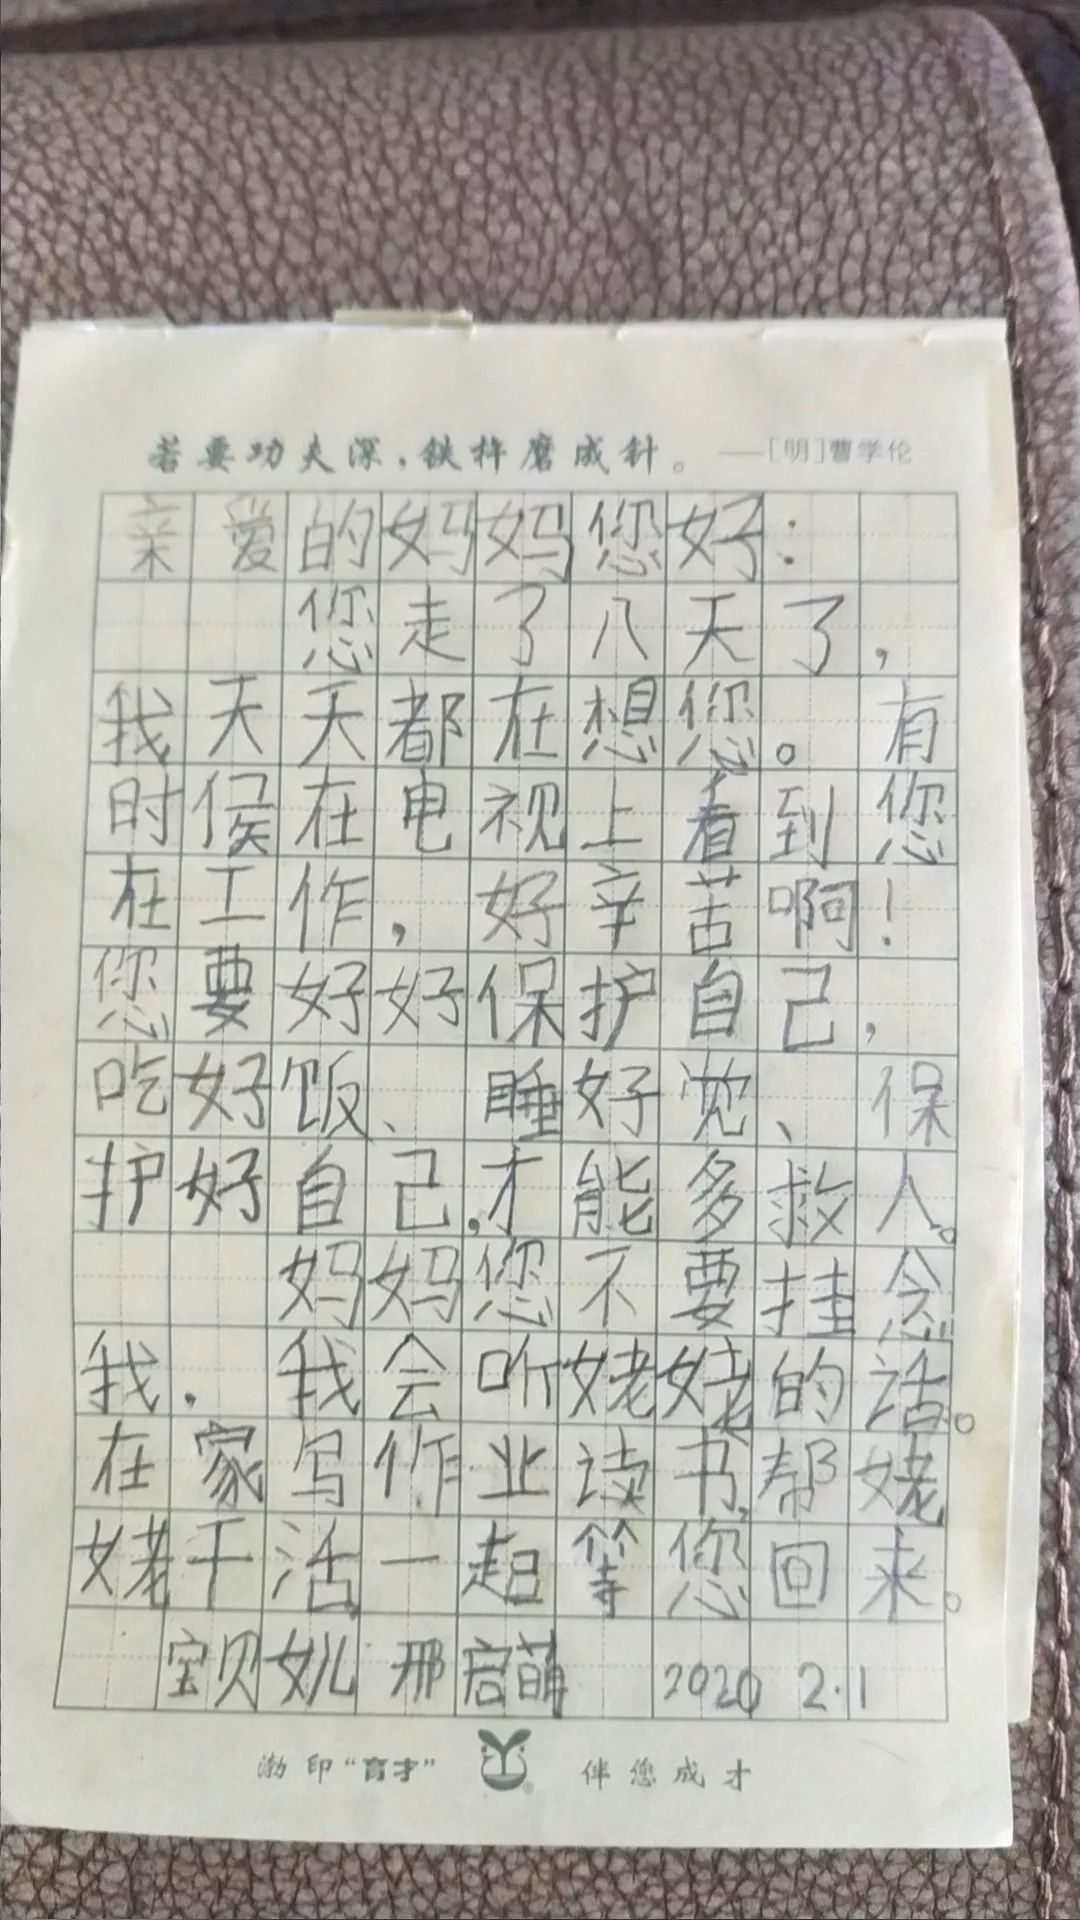 若要功夫深,铁杵磨成针。 ——[明]曹学伦
亲爱的妈妈您好:
您走了八天了,
我天天都在想您。有
时侯在电视上看到您
在工作,好辛苦啊!
您要好好保护自己,
吃好饭、睡好觉、保
护好自己,才能多救人。
妈妈您不要挂念
我.我会听姥姥的话。
在家写作业读书,帮姥
姥干活一起等您回来。
宝贝女儿 邢启萌 2020 2.1
渤印“育才” 伴您成才